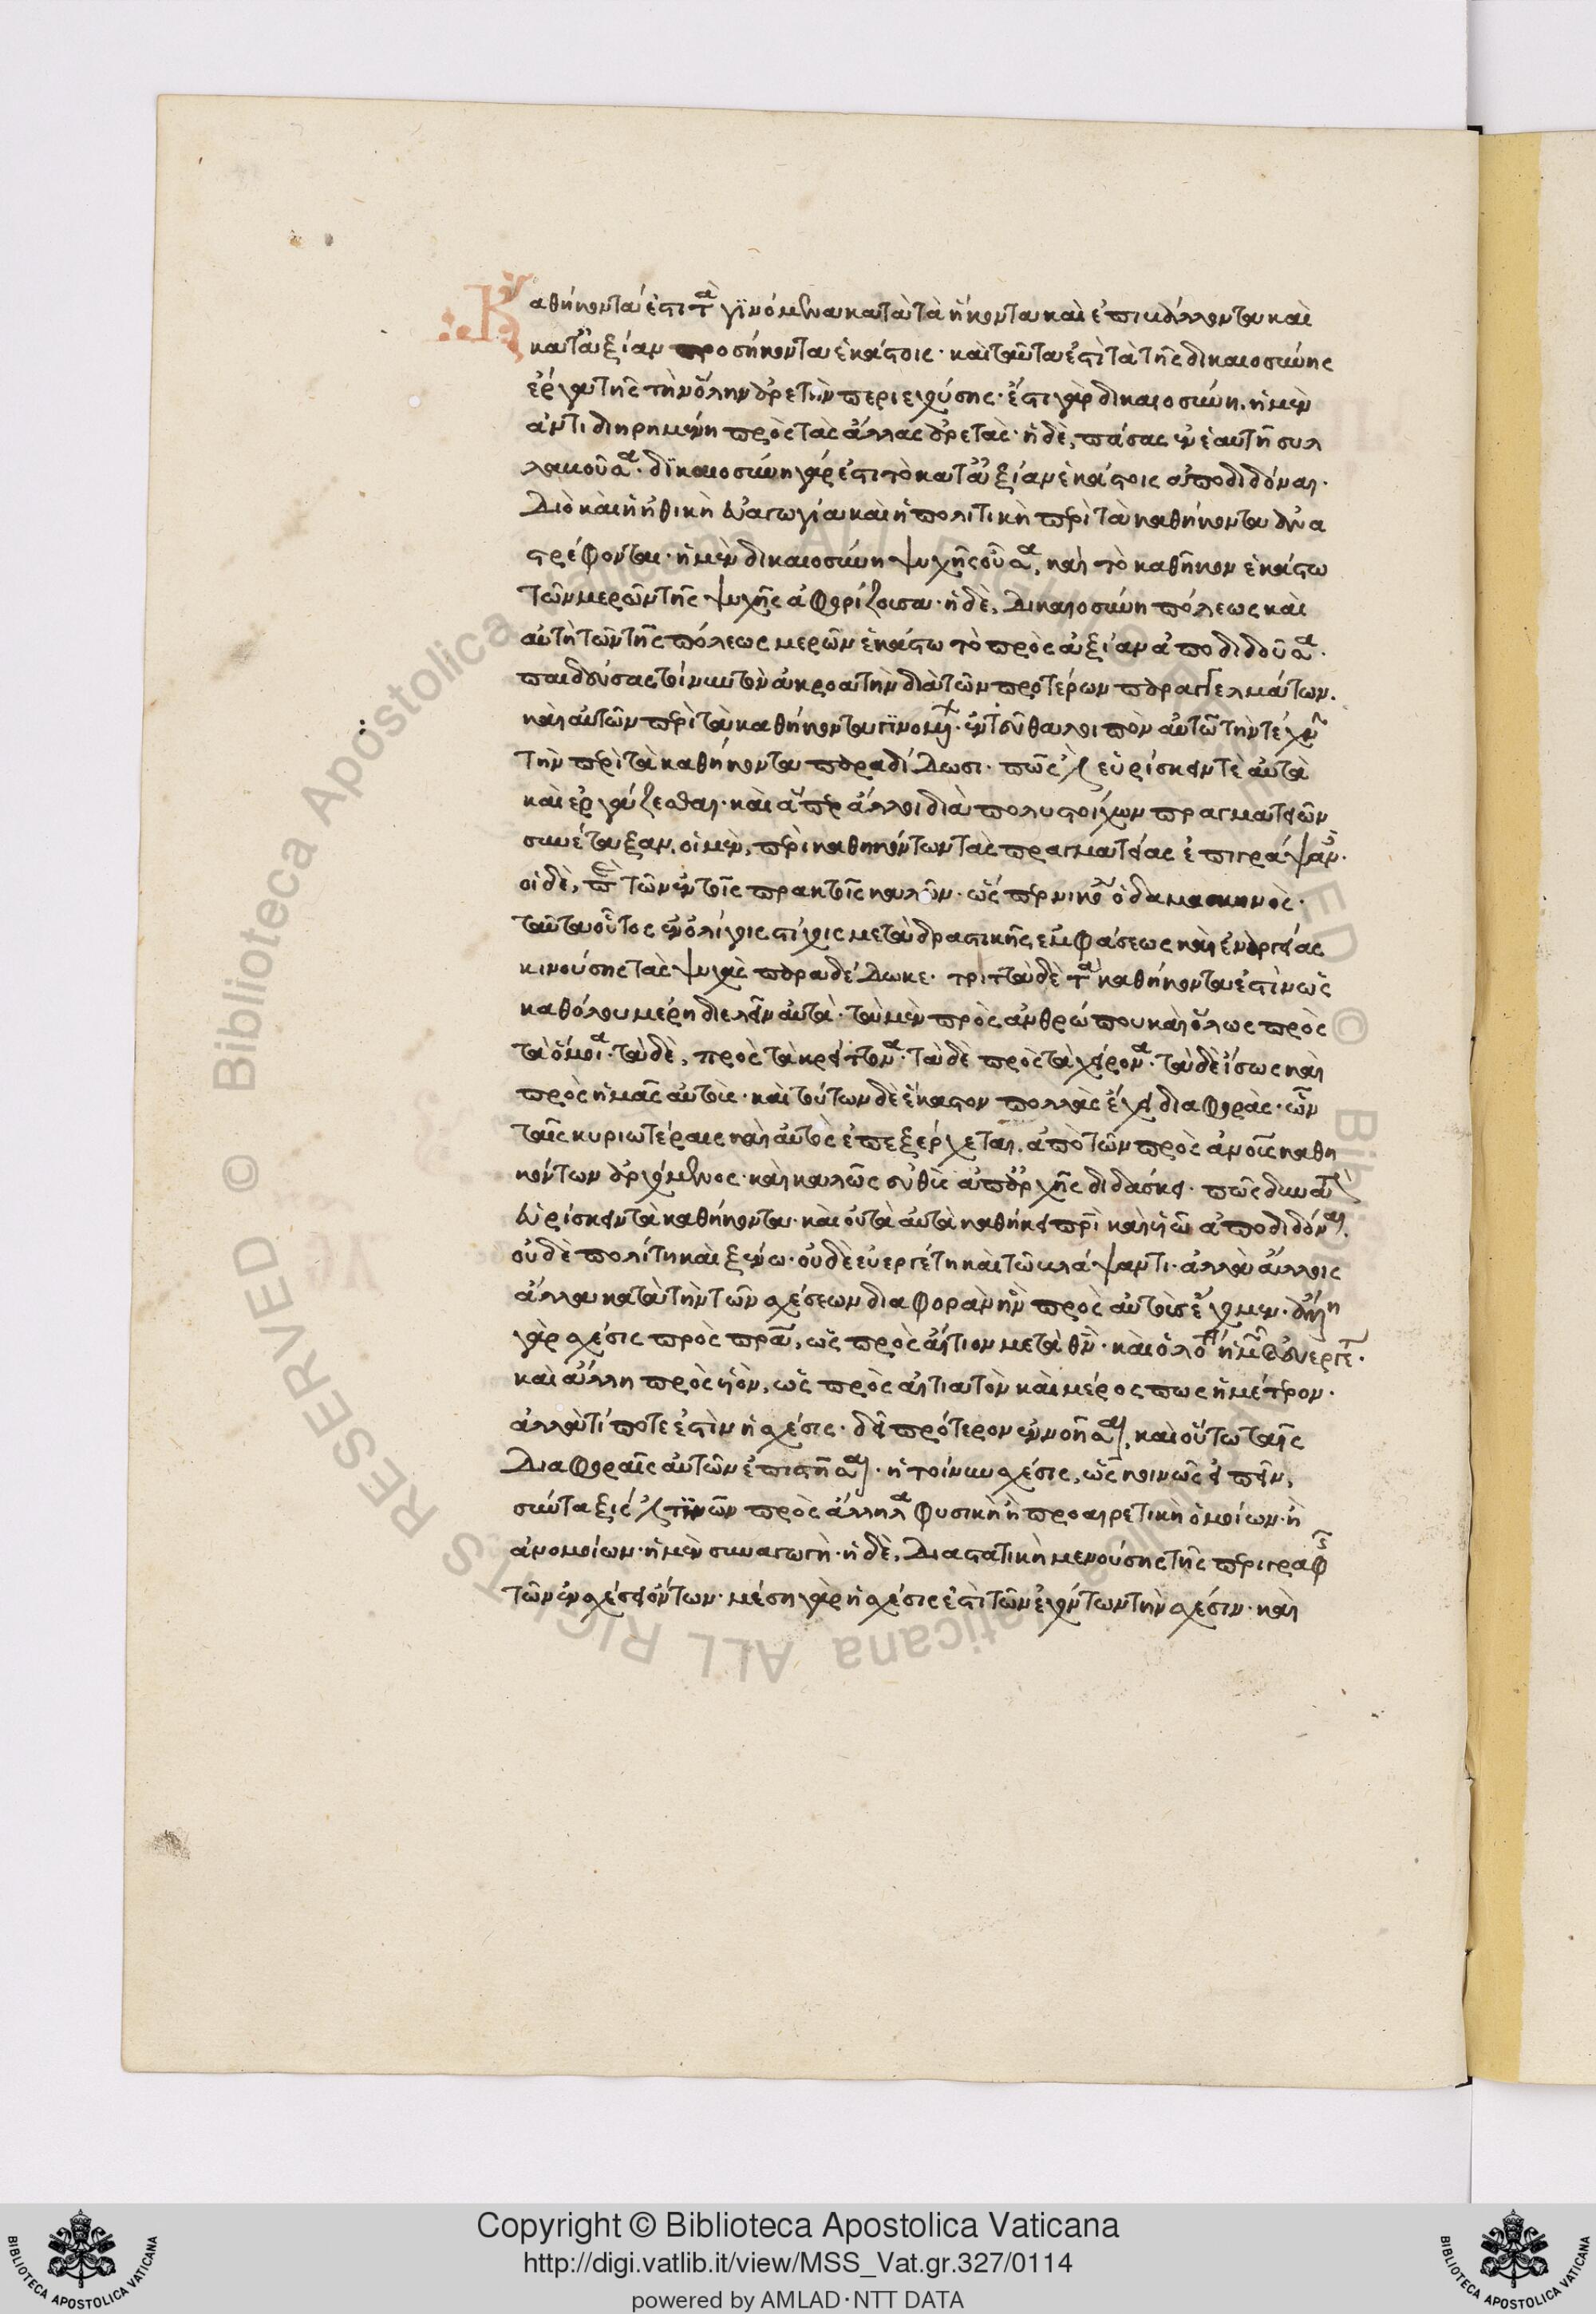 Καθήκοντά ἐστι τὰ γϊνόμενα κατὰ τὰ ἥκοντα καὶ ἐπιβάλλοντα καὶ
κατ' ἀξίαν προσήκοντα ἑκάστοις· καὶ ταῦτα ἐστὶ τὰ τῆς δικαιοσύνης
ἔργα τῆς τὴν ὅλην ἀρετὴν περιεχούσης· ἔστι γὰρ δικαιοσύνη, ἡ μὲν
ἀντιδιῃρημένη πρὸς τὰς ἄλλας ἀρετὰς· ἡ δὲ, πάσας ἐν ἑαυτῇ συλ
λαβοῦσα· δϊκαιοσύνη γάρ ἐστι τὸ κατ' ἀξίαν ἑκάστοις ἀποδιδόναι·
Διὸ καὶ ἡ ἠθικὴ εὐαγωγία καὶ ἡ πολιτικὴ περὶ τὰ καθήκοντα ἀνα
στρέφονται· ἡ μὲν δικαιοσύνη ψυχῆς οὖσα, καὶ τὸ καθῆκον ἑκάστω
τῶν μερῶν τῆς ψυχῆς ἀφορίζουσα· ἡ δὲ, Δικαιοσύνη πόλεως καὶ
αὐτὴ τῶν τῆς πόλεως μερῶν ἑκάστω τὸ πρὸς ἀξίαν ἀποδιδοῦσα·
παιδεύσας τοίνυν τὸν ἀκροατὴν διὰ τῶν προτέρων παραγγελμάτων.
καὶ αὐτῶν περὶ τὰ καθήκοντα γϊνομένων· ἐντεῦθα λοιπὸν αὐτῶ τὴν τέχνην
τὴν περὶ τὰ καθήκοντα παραδίδωσι· πῶς ἔστιν εὑρίσκειν τὲ αὐτὰ
καὶ ἐργάζεσθαι· καὶ ἅπερ ἄλλοι διὰ πολυστοίχων πραγματειῶν
συνέταξαν, οἱ μὲν, περὶ καθηκόντων τὰς πραγματείας ἐπιγράψαντες·
οἱ δὲ, περὶ τῶν ἐν τοῖς πρακτοῖς καλῶν· ὥσπερ νικόλαος ὁ δαμασκηνὸς·
ταῦτα οὗτος ἐν ὀλίγοις στίχοις μετὰ δραστικῆς ἐμφάσεως καὶ ἐναργείας
κινούσης τὰς ψυχὰς παραδέδωκε· τριττὰ δὲ τὰ καθήκοντα ἐστὶν ὡς
καθόλου μέρη διελεῖν αὐτὰ· τὰ μὲν πρὸς ἀνθρώπου καὶ ὅλως πρὸς
τὰ ὅμοια· τὰ δὲ, πρὸς τὰ κρείττονα· τὰ δὲ πρὸς τὰ χείρονα· τὰ δὲ ἴσως καὶ
πρὸς ἡμᾶς αὐτοὺς· καὶ τούτων δὲ ἕκαστον πολλὰς ἔχει διαφορὰς· ὧν
ταῖς κυριωτέραις καὶ αὐτὸς ἐπεξέρχεται, ἀπὸ τῶν πρὸς ἀνθρώπους καθη
κόντων ἀρχόμενος· καὶ καλῶς εὐθὺς ἀπ' ἀρχῆς διδάσκει· πῶς δυνατὸν
εὑρίσκειν τὰ καθήκοντα· καὶ οὐ τὰ αὐτὰ καθήκει πατρὶ καὶ υἱῶ ἀποδιδόναι,
οὐδὲ πολίτη καὶ ξένω· οὐδὲ εὐεργέτη καὶ τῶ βλάψαντι· ἀλλὰ ἄλλοις
ἄλλα κατὰ τὴν τῶν σχέσεων διαφορὰν ἣν πρὸς αὐτοὺς ἔχομεν· ἄλλη
γὰρ σχέσις πρὸς πατέρα, ὡς πρὸς αἴτιον μετὰ θεὸν· καὶ ὁλότητα ἡμῶν καὶ εὐεργέτην·
καὶ ἄλλη πρὸς υἱὸν, ὡς πρὸς αἰτιατὸν καὶ μέρος πως ἡμέτερον·
ἀλλὰ τί ποτε ἐστὶν ἡ σχέσις· δεῖ πρότερον ἐννοῆσαι, καὶ οὕτω ταῖς
Διαφοραῖς αὐτῶν ἐπιστῆσαι· ἡ τοίνυν σχέσις, ὡς κοινῶς εἰπεῖν,
σύνταξις ἐστί τϊνῶν πρὸς ἄλληλα φυσικὴ ἢ προαιρετικὴ ὁμοίων· ἢ
ἀνομοίων· ἡ μὲν συναγωγὴ· ἡ δὲ, Διαστατικὴ μενούσης τῆς περιγραφῆς
τῶν ἐν σχέσει ὄντων· μέση γὰρ ἡ σχέσις ἐστὶ τῶν ἐχόντων τὴν σχέσιν· καὶ
Copyright © Biblioteca Apostolica Vaticana
http://digi.vatlib.it/view/MSS_Vat.gr.327/0114
powered by AMLAD·NTT DATA
BIBLIOTECA APOSTOLICA VATICANA
BIBLIOTECA APOSTOLICA VATICANA
© Biblioteca Apostolica Vaticana ALL RIGHTS RESERVED